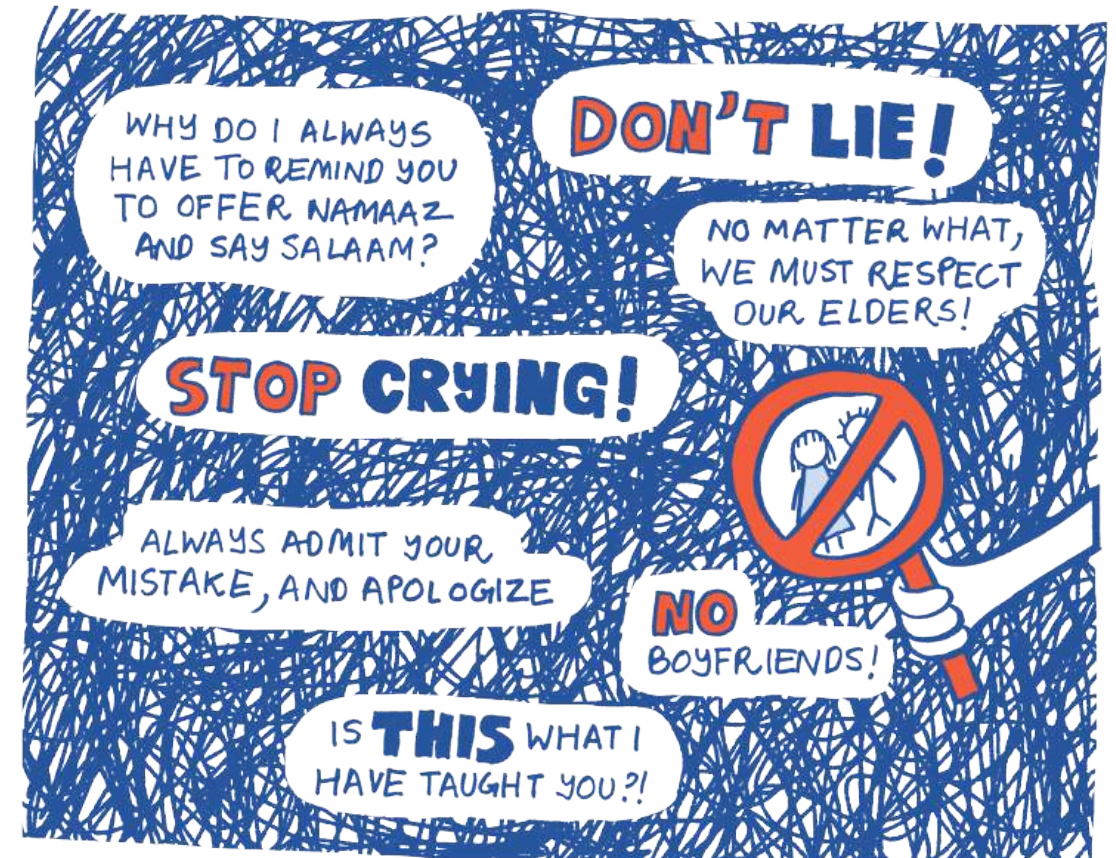 WHY DO I ALWAYS
HAVE TO REMIND YOU
TO OFFER NAMAAZ
AND SAY SALAAM?
DON'T LIE!
NO MATTER WHAT,
WE MUST RESPECT
OUR ELDERS!
STOP CRYING!
ALWAYS ADMIT YOUR
MISTAKE, AND APOLOGIZE
NO
BOYFRIENDS!
IS THIS WHAT I
HAVE TAUGHT YOU?!